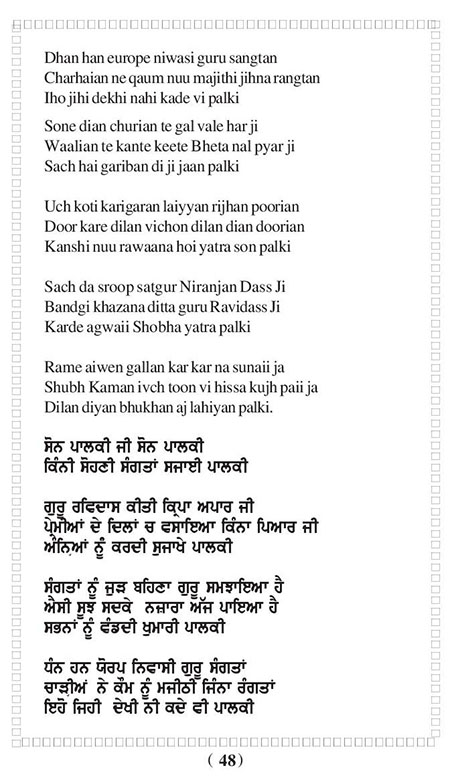 Dhan han europe niwasi guru sangtan
Charhaian ne qaum nuu majithi jihna rangtan
Iho jihi dekhi nahi kade vi palki
Sone dian churian te gal vale har ji
Waalian te kante keete Bheta nal pyar ji
Sach hai gariban di ji jaan palki
Uch koti karigaran laiyyan rijhan poorian
Door kare dilan vichon dilan dian doorian
Kanshi nuu rawaana hoi yatra son palki
Sach da sroop satgur Niranjan Dass Ji
Bandgi khazana ditta guru Ravidass Ji
Karde agwaii Shobha yatra palki
Rame aiwen gallan kar kar na sunaii ja
Shubh Kaman ivch toon vi hissa kujh paii ja
Dilan diyan bhukhan aj lahiyan palki.
ਸੋਨ ਪਾਲਕੀ ਜੀ ਸੋਨ ਪਾਲਕੀ
ਕਿੰਨੀ ਸੋਹਣੀ ਸੰਗਤਾਂ ਸਜਾਈ ਪਾਲਕੀ
ਗੁਰੂ ਰਵਿਦਾਸ ਕੀਤੀ ਕ੍ਰਿਪਾ ਅਪਾਰ ਜੀ
ਪ੍ਰੇਮੀਆਂ ਦੇ ਦਿਲਾਂ ਚ ਵਸਾਇਆ ਕਿੰਨਾ ਪਿਆਰ ਜੀ
ਅੰਨਿਆਂ ਨੂੰ ਕਰਦੀ ਸੁਜਾਖੇ ਪਾਲਕੀ
ਸੰਗਤਾਂ ਨੂੰ ਜੁੜ ਬਹਿਣਾ ਗੁਰੂ ਸਮਝਾਇਆ ਹੈ
ਐਸੀ ਸੂਝ ਸਦਕੇ ਨਜ਼ਾਰਾ ਅੱਜ ਪਾਇਆ ਹੈ
ਸਭਨਾਂ ਨੂੰ ਵੰਡਦੀ ਖੁਮਾਰੀ ਪਾਲਕੀ
ਧੰਨ ਹਨ ਯੋਰਪ ਨਿਵਾਸੀ ਗੁਰੂ ਸੰਗਤਾਂ
ਚਾੜੀਆਂ ਨੇ ਕੌਮ ਨੂੰ ਮਜੀਠੀ ਜਿੰਨਾ ਰੰਗਤਾਂ
ਇਹੋ ਜਿਹੀ ਦੇਖੀ ਨੀ ਕਦੇ ਵੀ ਪਾਲਕੀ
( 48)